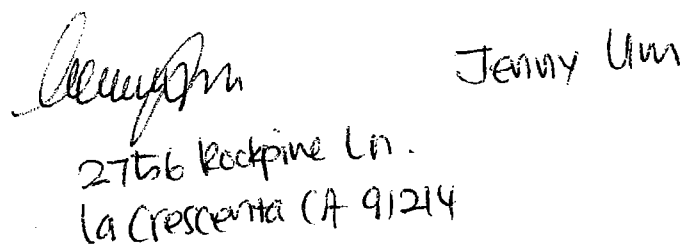 Jenny Um
2756 Rockpine Ln.
La Crescenta CA 91214